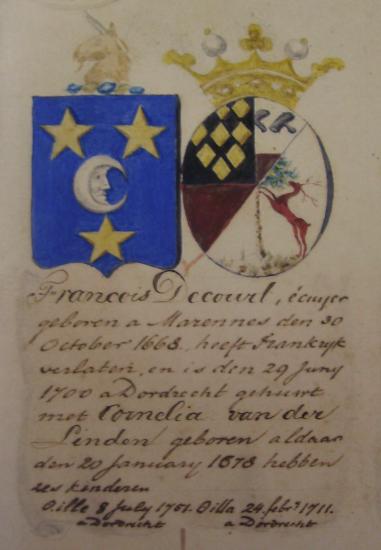 François Decourt, écuyer
geboren a Marennes den 30
October 1668, heeft Frankryk
verlaten, en is den 29 Juny
1700 a Dordrecht gehuwt
met Cornelia van der
Linden geboren aldaar
den 20 January 1678 hebben
zes kinderen
Oille 8 July 1751. Oilla 24 febr. 1711.
a Dordrecht a Dordrecht